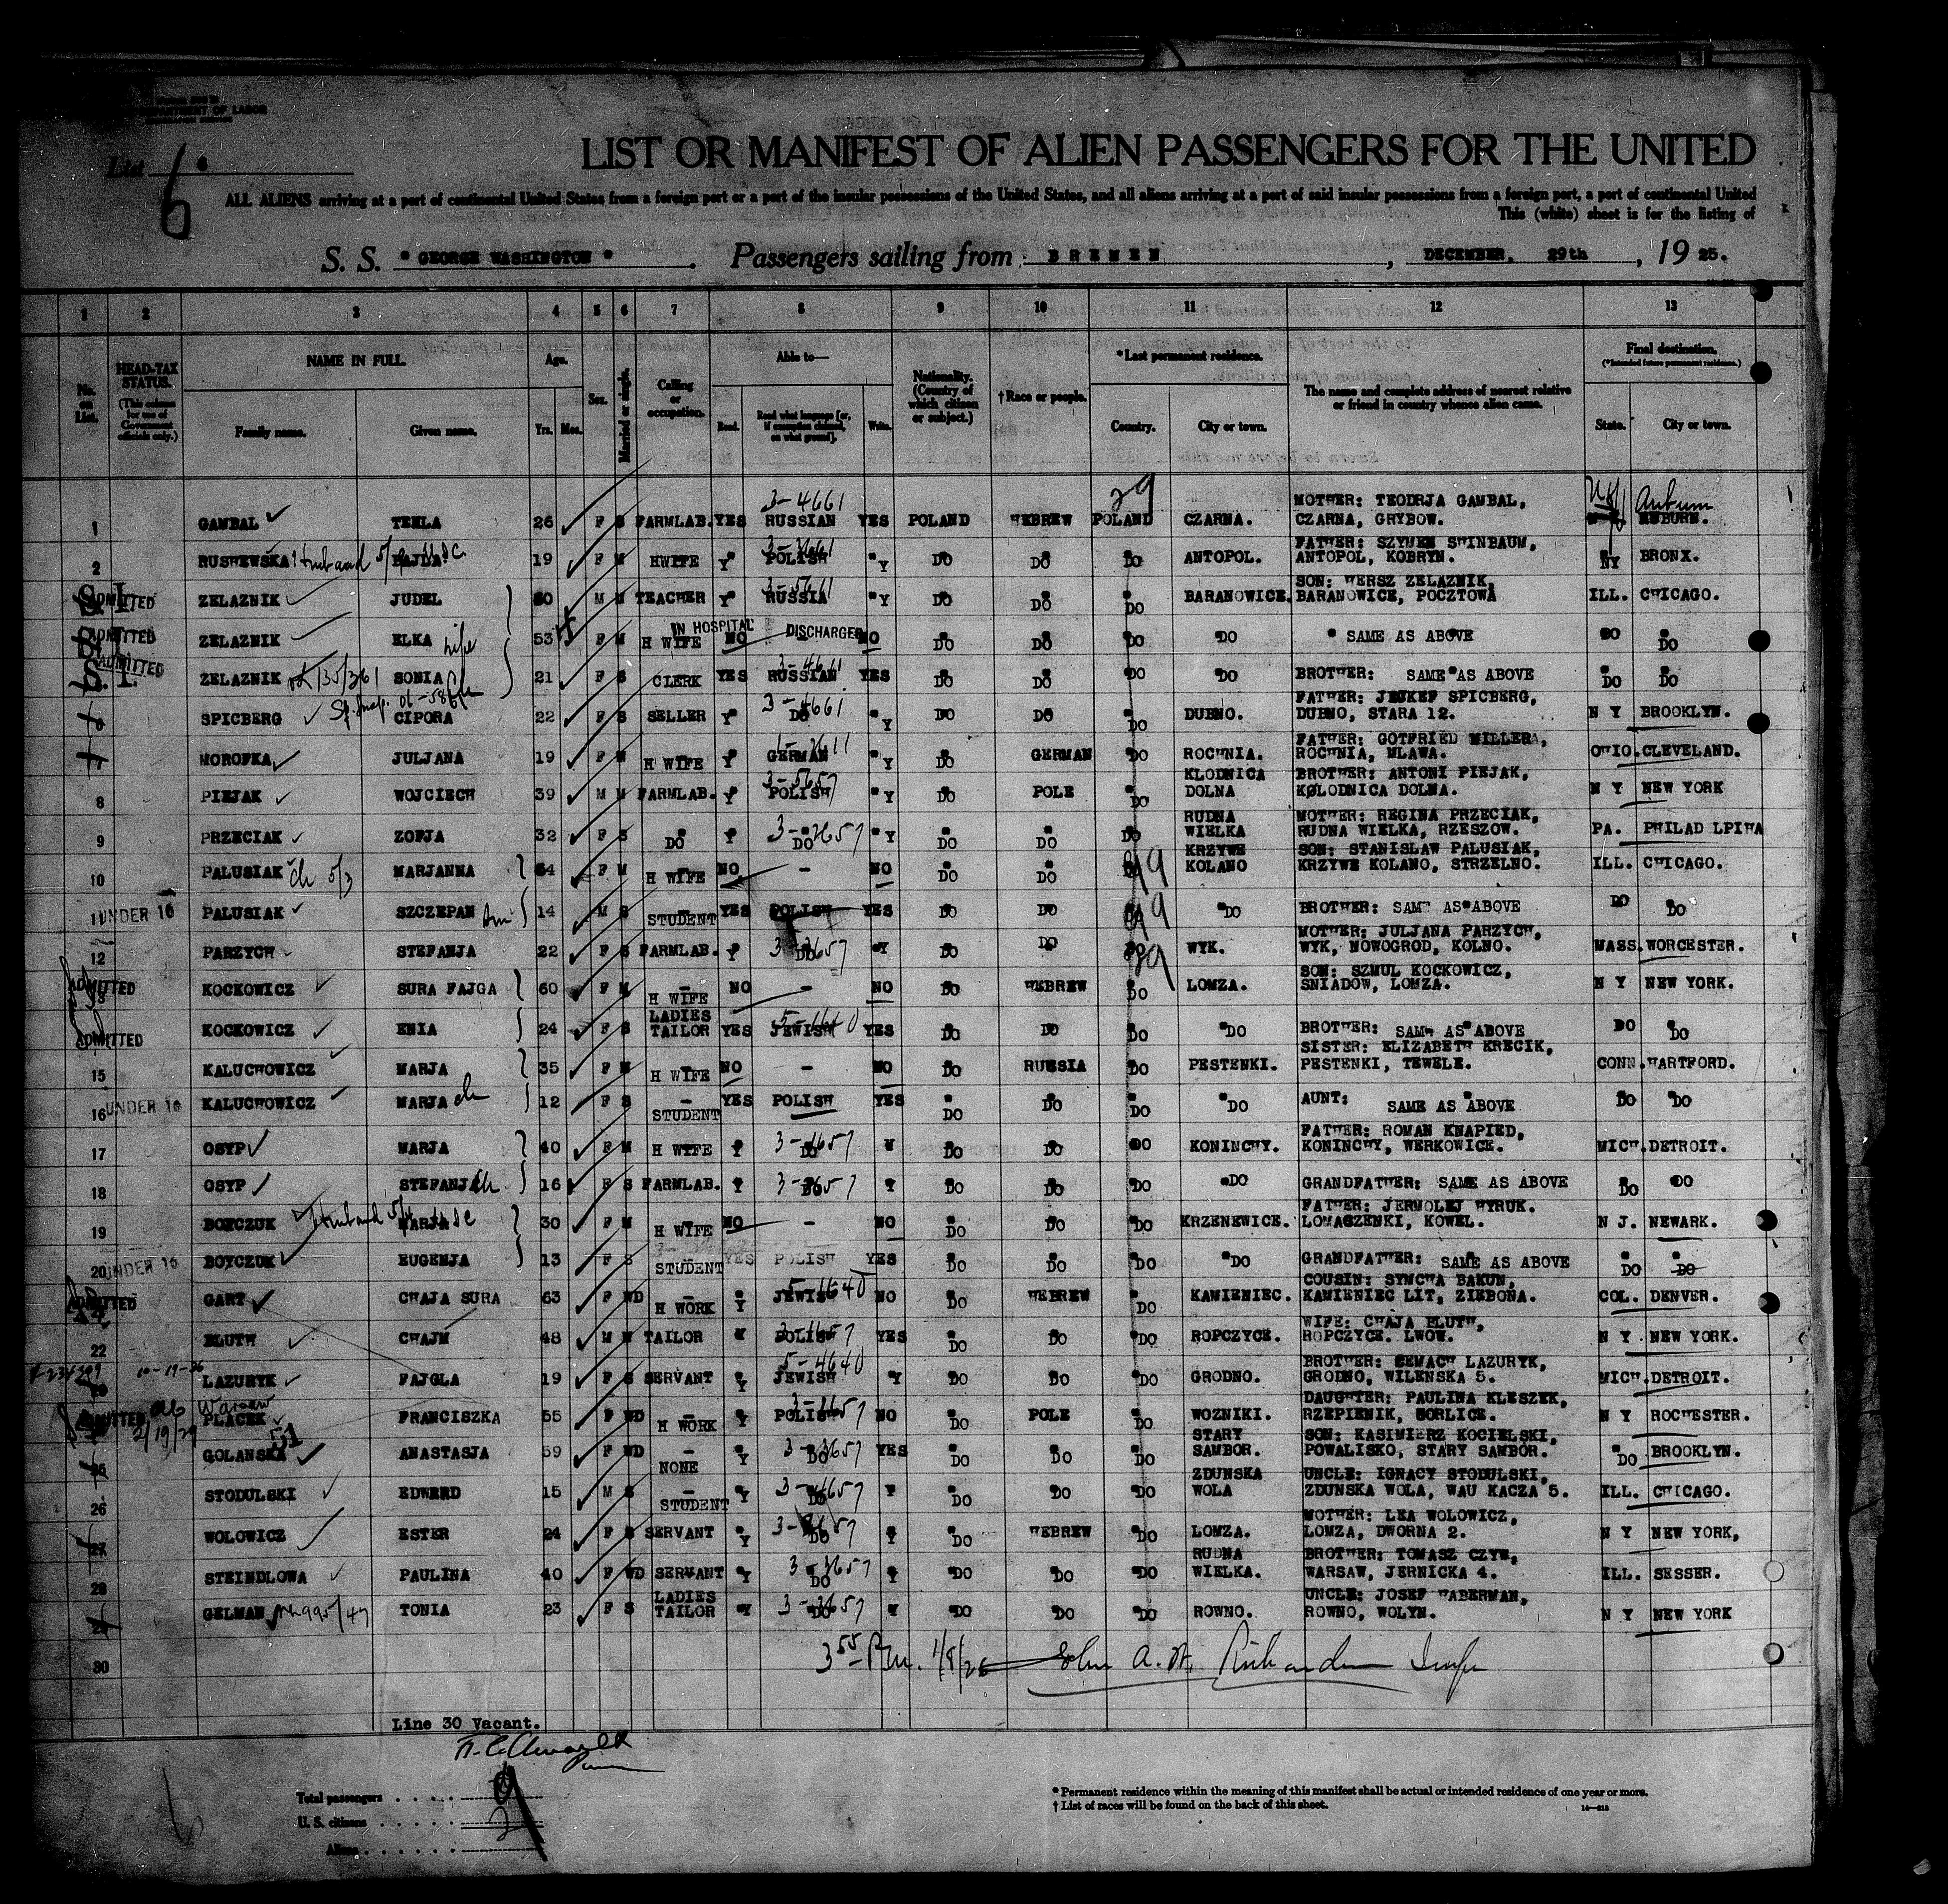 DEPARTMENT OF LABOR
List 6
LIST OR MANIFEST OF ALIEN PASSENGERS FOR THE UNITED
ALL ALIENS arriving at a port of continental United States from a foreign port or a port of the insular possessions of the United States, and all aliens arriving at a port of said insular possessions from a foreign port, a port of continental United
This (white) sheet is for the listing of
S. S. "GEORGE WASHINGTON". Passengers sailing from BREMEN, DECEMBER, 29th, 1925.
1 2 3 4 5 6 7 8 9 10 11 12 13
No. on List. HEAD-TAX STATUS. (This column for use of Government officials only.) NAME IN FULL. Family name. Given name. Age. Yrs. Mos. Sex. Married or single. Calling or occupation. Able to— Read. Read what language [or, if exemption claimed, on what ground]. Write. Nationality. (Country of which citizen or subject.) †Race or people. *Last permanent residence. Country. City or town. The name and complete address of nearest relative or friend in country whence alien came. Final destination. (*Intended future permanent residence.) State. City or town.
3-4661 29 MOTHER: TEODRJA GAMBAL, NY Auburn
1 GAMBAL TEKLA 26 F S FARMLAB. YES RUSSIAN YES POLAND HEBREW POLAND CZARNA. CZARNA, GRYBOW. AUBURN.
FATHER: SZYMEN SHINBAUM,
2 RUSHEWSKA Husband 19 F M HWIFE Y POLISH "Y DO DO DO ANTOPOL. ANTOPOL, KOBRYN. NY BRONX.
SON: HERSZ ZELAZNIK,
S.I. ADMITTED ZELAZNIK JUDEL M M TEACHER Y RUSSIA "Y DO DO DO BARANOWICE. BARANOWICE, POCZTOWA ILL. CHICAGO.
IN HOSPITAL DISCHARGED
ADMITTED ZELAZNIK ELKA wife 53 F M H WIFE NO NO DO DO DO "DO " SAME AS ABOVE DO DO
S.I. ADMITTED ZELAZNIK SONIA 21 F S CLERK YES RUSSIAN YES DO DO DO "DO BROTHER: SAME AS ABOVE DO DO
3-4661 FATHER: JESKEF SPICBERG,
SPICBERG CIPORA 22 F S SELLER Y" DO "Y DO DO DO DUBNO. DUBNO, STARA 12. N Y BROOKLYN.
FATHER: GOTFRIED MILLERA,
MOROFKA JULJANA 19 F M H WIFE Y GERMAN "Y DO GERMAN DO ROCHNIA. ROCHNIA, MLAWA. OHIO. CLEVELAND.
KLODNICA BROTHER: ANTONI PIEJAK,
8 PIEJAK WOJCIECH 39 M M FARMLAB. Y POLISH "Y DO POLE DO DOLNA KOLODNICA DOLNA. N Y NEW YORK
RUDNA MOTHER: REGINA PRZECIAK,
9 PRZECIAK ZOFJA 32 F S DO Y DO "Y DO DO DO WIELKA RUDNA WIELKA, RZESZOW. PA. PHILAD LPIHA
KRZYWE SON: STANISLAW PALUSIAK,
10 PALUSIAK MARJANNA F M H WIFE NO - NO DO DO KOLANO KRZYWE KOLANO, STRZELNO. ILL. CHICAGO.
11 UNDER 16 PALUSIAK SZCZEPAN 14 M S STUDENT YES POLISH YES DO DO "DO BROTHER: SAME AS ABOVE DO DO
MOTHER: JULJANA PARZYCH,
12 PARZYCH STEFANJA 22 F S FARMLAB. Y DO "Y DO DO WYK. WYK, NOWOGROD, KOLNO. MASS. WORCESTER.
SON: SZMUL KOCKOWICZ,
ADMITTED KOCKOWICZ SURA FAJGA 60 F M H WIFE NO - NO DO HEBREW DO LOMZA. SNIADOW, LOMZA. N Y NEW YORK.
ADMITTED KOCKOWICZ ENIA 24 F S LADIES TAILOR YES JEWISH YES DO DO DO "DO BROTHER: SAME AS ABOVE DO DO
SISTER: ELIZABETH KRECIK,
15 KALUCHOWICZ MARJA 35 F M H WIFE NO - NO DO RUSSIA DO PESTENKI. PESTENKI, TEWELE. CONN. HARTFORD.
16 UNDER 16 KALUCHOWICZ MARJA 12 F S STUDENT YES POLISH YES DO DO DO "DO AUNT: SAME AS ABOVE DO DO
FATHER: ROMAN KNAPIED,
17 OSYP MARJA 40 F M H WIFE Y DO DO DO DO KONINCHY. KONINCHY, WERKOWICE. MICH. DETROIT.
18 OSYP STEFANJA 16 F S FARMLAB. Y DO Y DO DO DO "DO GRANDFATHER: SAME AS ABOVE DO DO
FATHER: JERMOLEJ HYRUK.
19 BOYCZUK Husband MARJA 30 F M H WIFE NO - NO DO DO DO KRZENEWICE. LOMACZENKI, KOWEL. N J. NEWARK.
20 UNDER 16 BOYCZUK EUGENJA 13 F S STUDENT YES POLISH YES DO DO DO "DO GRANDFATHER: SAME AS ABOVE DO DO
COUSIN: SYMCHA BAKUN,
ADMITTED GART CHAJA SURA 63 F WD H WORK Y JEWISH NO DO HEBREW DO KAMIENIEC. KAMIENIEC LIT, ZIEBONA. COL. DENVER.
WIFE: CHAJA BLUTH,
22 BLUTH CHAJM 48 M M TAILOR POLISH YES DO DO DO ROPCZYCE. ROPCZYCE. LWOW. N Y. NEW YORK.
10-19-26 5-4640 BROTHER: CEMACH LAZURYK,
LAZURYK FAJGLA 19 F S SERVANT Y JEWISH "Y DO DO DO GRODNO. GRODNO, WILENSKA 5. MICH. DETROIT.
Warsaw DAUGHTER: PAULINA KLESZEK,
ADMITTED PLACEK FRANCISZKA 55 F WD H WORK Y POLISH NO DO POLE DO WOZNIKI. RZEPIENIK, GORLICE. N Y ROCHESTER.
2/19/29 STARY SON: KASIMIERZ KOCIELSKI,
GOLANSKA ANASTASJA 59 F WD NONE Y DO YES DO DO DO SAMBOR. POWALISKO, STARY SAMBOR. DO BROOKLYN.
ZDUNSKA UNCLE: IGNACY STODULSKI,
26 STODULSKI EDWERD 15 M S STUDENT Y DO DO DO DO WOLA ZDUNSKA WOLA, WAU KACZA 5. ILL. CHICAGO.
MOTHER: LEA WOLOWICZ,
27 WOLOWICZ ESTER 24 F S SERVANT Y DO Y DO HEBREW DO LOMZA. LOMZA, DWORNA 2. N Y NEW YORK,
RUDNA BROTHER: TOMASZ CZYW,
28 STEINDLOWA PAULINA 40 F WD SERVANT Y DO Y DO DO DO WIELKA. WARSAW, JERNICKA 4. ILL. SESSER.
LADIES UNCLE: JOSEF HABERMAN,
29 GELMAN TONIA 23 F S TAILOR Y DO DO DO DO ROWNO. ROWNO, WOLYN. N Y NEW YORK
30 3 55 P.M. 1/8/26 John A. Richardson Insp
Line 30 Vacant.
Total passengers
U. S. citizens
Aliens
* Permanent residence within the meaning of this manifest shall be actual or intended residence of one year or more.
† List of races will be found on the back of this sheet.